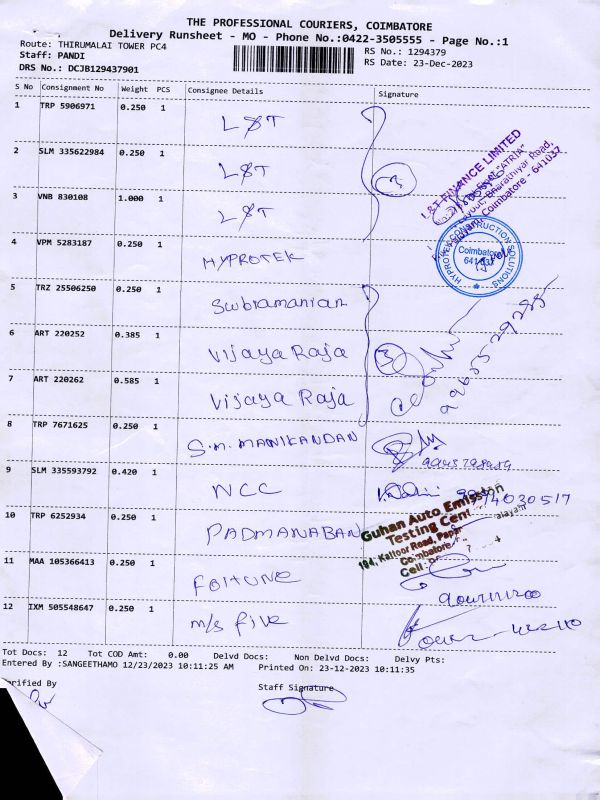 THE PROFESSIONAL COURIERS, COIMBATORE
Delivery Runsheet - MO - Phone No.:0422-3505555 - Page No.:1
Route: THIRUMALAI TOWER PC4
RS No.: 1294379
Staff: PANDI
RS Date: 23-Dec-2023
DRS No.: DCJB129437901
S No Consignment No Weight PCS Consignee Details Signature
1 TRP 5906971 0.250 1 L&T
2 SLM 335622984 0.250 1 L&T
3 VNB 830108 1.000 1 L&T
3
L&T FINANCE LIMITED
"ATRIA"
Bharathiyar Road,
Coimbatore - 641037
4 VPM 5283187 0.250 1 HYPROTEK
HYPROTEK CONSTRUCTION SOLUTIONS
Coimbatore
641 037
5 TRZ 25506250 0.250 1 Subramanian
6 ART 220252 0.385 1 Vijaya Raja
3
7 ART 220262 0.585 1 Vijaya Raja
8 TRP 7671625 0.250 1 S.M. MANIKANDAN
9 SLM 335593792 0.420 1 NCC
10 TRP 6252934 0.250 1 PADMANABAN
Guhan Auto Emission
Testing
194, Kalloor Road,
Coimbatore
Cell
11 MAA 105366413 0.250 1 FORTUNE
12 IXM 505548647 0.250 1 M/s five
Tot Docs: 12 Tot COD Amt: 0.00 Delvd Docs: Non Delvd Docs: Delvy Pts:
Entered By :SANGEETHAMO 12/23/2023 10:11:25 AM Printed On: 23-12-2023 10:11:35
erified By
Staff Signature